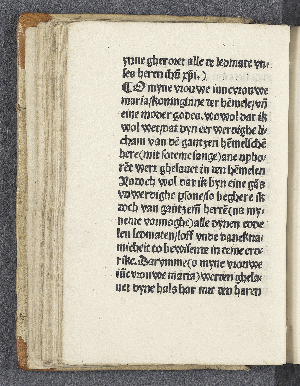 ynne gheroret alle te ledmate vn-
ses heren
O myne vrouwe
maria koninginne der hēmele vn̄
eine moder godes. wowol dat ik
wol wet dat dyn eerwerdighe li-
cham van dē gantzen hēmelschē
here (mit soteme sange) ane upho-
rēt wert ghelauet in den hēmelen
Notoch wol dat ik byn eine gās
vnwerdighe psone so beghere ik
doch van gantzem herte (na my-
neme vormoghe) alle dynen edde-
len ledmaten loff vnde danckna-
micheit to bewisente in deme erd-
rike. Darumme (o myne vrouwe
vrouwe maria) werden ghela-
uet dyne hals har mit den haren